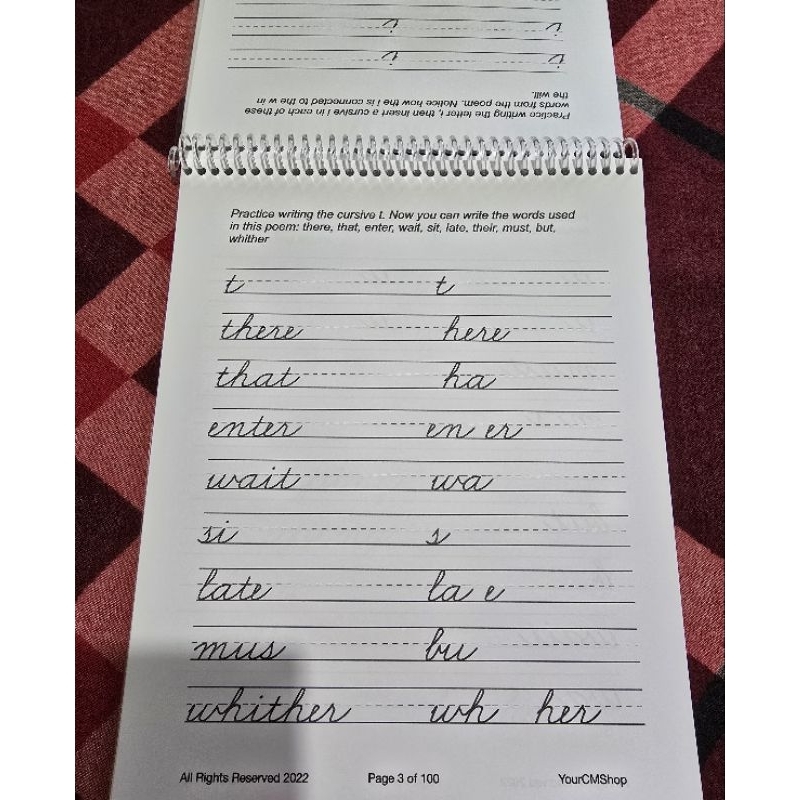 Practice writing the letter i, then insert a cursive i in each of these
words from the poem. Notice how the i is connected to the w in
the will.
i i
i i
Practice writing the cursive t. Now you can write the words used
in this poem: there, that, enter, wait, sit, late, their, must, but,
whither
t t
there here
that ha
enter en er
wait wa
si s
late la e
mus bu
whither wh her
All Rights Reserved 2022 Page 3 of 100 YourCMShop